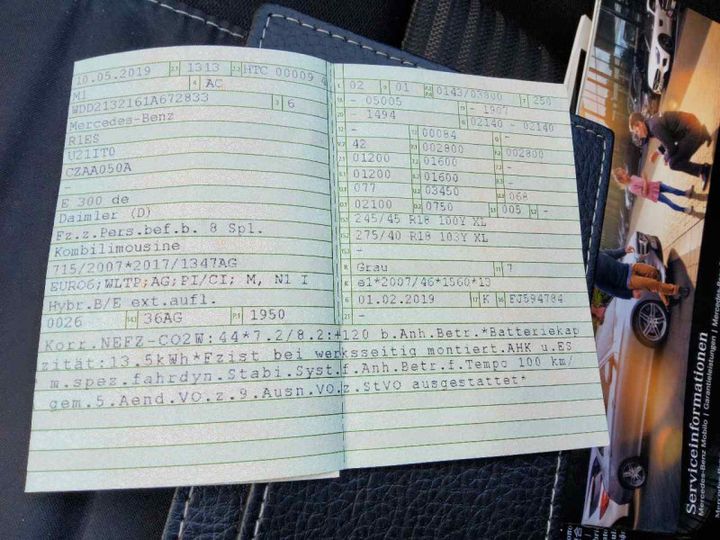 10.05.2019 1313 HTC 00009
M1 AC
WDD2132161A672833 6
Mercedes-Benz
R1ES
U21IT0
CZAA050A
-
E 300 de
Daimler (D)
Fz.z.Pers.bef.b. 8 Spl.
Kombilimousine
715/2007*2017/1347AG
EURO6;WLTP;AG;PI/CI; M, N1 I
Hybr.B/E ext.aufl.
0026 36AG 1950
02 01 0143/03800 250
- 05005 - 1987
- 1494 02140 - 02140
- 00084 -
42 002800 002800
01200 01600 -
01200 01600 -
077 03450 068
02100 0750 005 -
245/45 R18 100Y XL
275/40 R18 103Y XL
-
Grau 7
e1*2007/46*1560*13
01.02.2019 K EJ594784
-
Korr.NEFZ-CO2W:44*7.2/8.2:+120 b.Anh.Betr.*Batteriekap
zität:13.5kWh*Fzist bei werksseitig montiert.AHK u.ES
m.spez.fahrdyn.Stabi.Syst.f.Anh.Betr.f.Tempo 100 km/
gem.5.Aend.VO.z.9.Ausn.VO.z.StVO ausgestattet*
Serviceinformationen
Mercedes-Benz Mobilo | Garantieleistungen | Mercedes-Ben